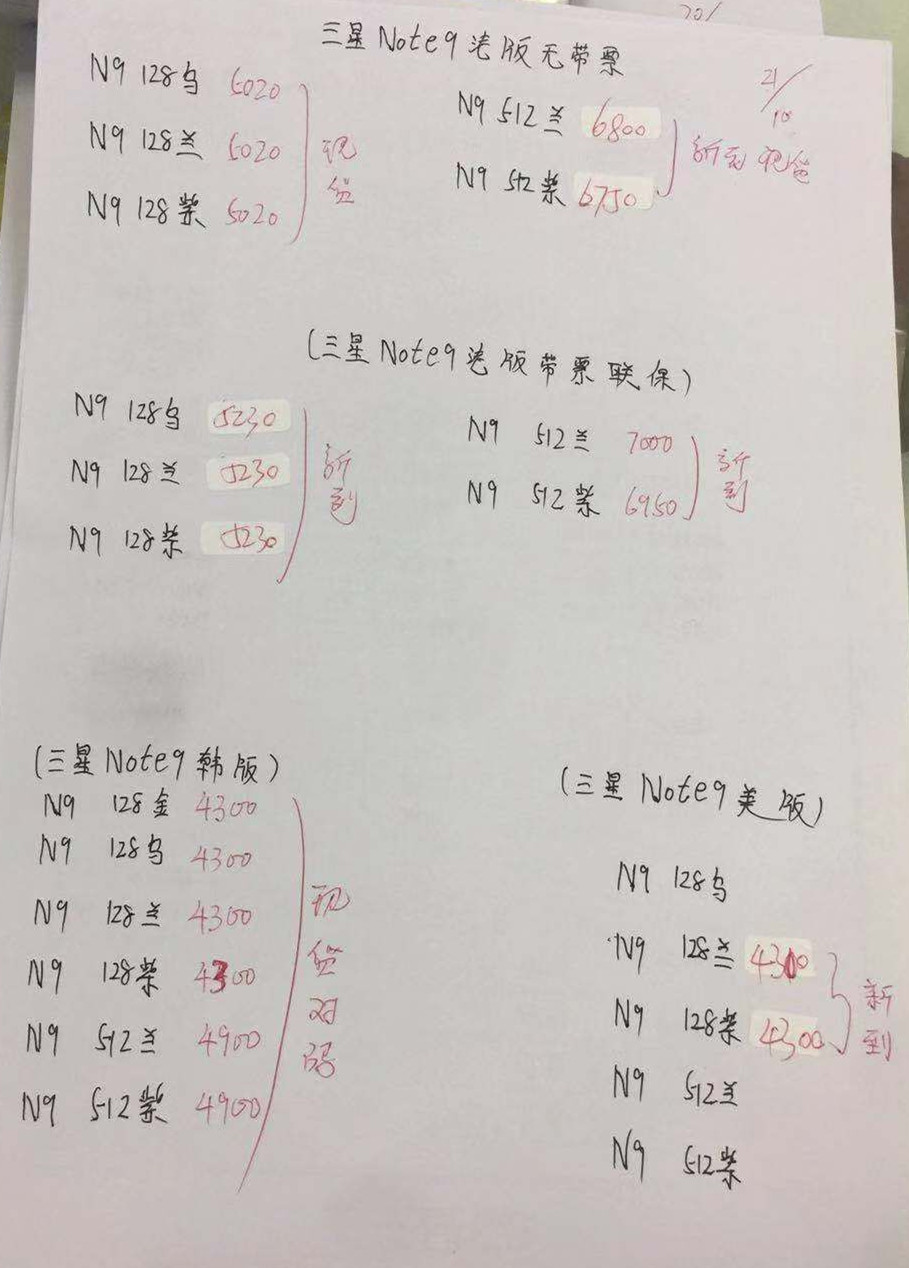 20/
三星Note9港版无带票
21/10
N9 128乌 5020
N9 128兰 5020
N9 128紫 5020
现货
N9 512兰 6800
N9 512紫 6750
新到现货
(三星Note9港版带票联保)
N9 128乌 5230
N9 128兰 5230
N9 128紫 5230
新到
N9 512兰 7000
N9 512紫 6950
新到
(三星Note9韩版)
N9 128金 4300
N9 128乌 4300
N9 128兰 4300
N9 128紫 4300
N9 512兰 4900
N9 512紫 4900
现货对码
(三星Note9美版)
N9 128乌
N9 128兰 4300
N9 128紫 4300
新到
N9 512兰
N9 512紫